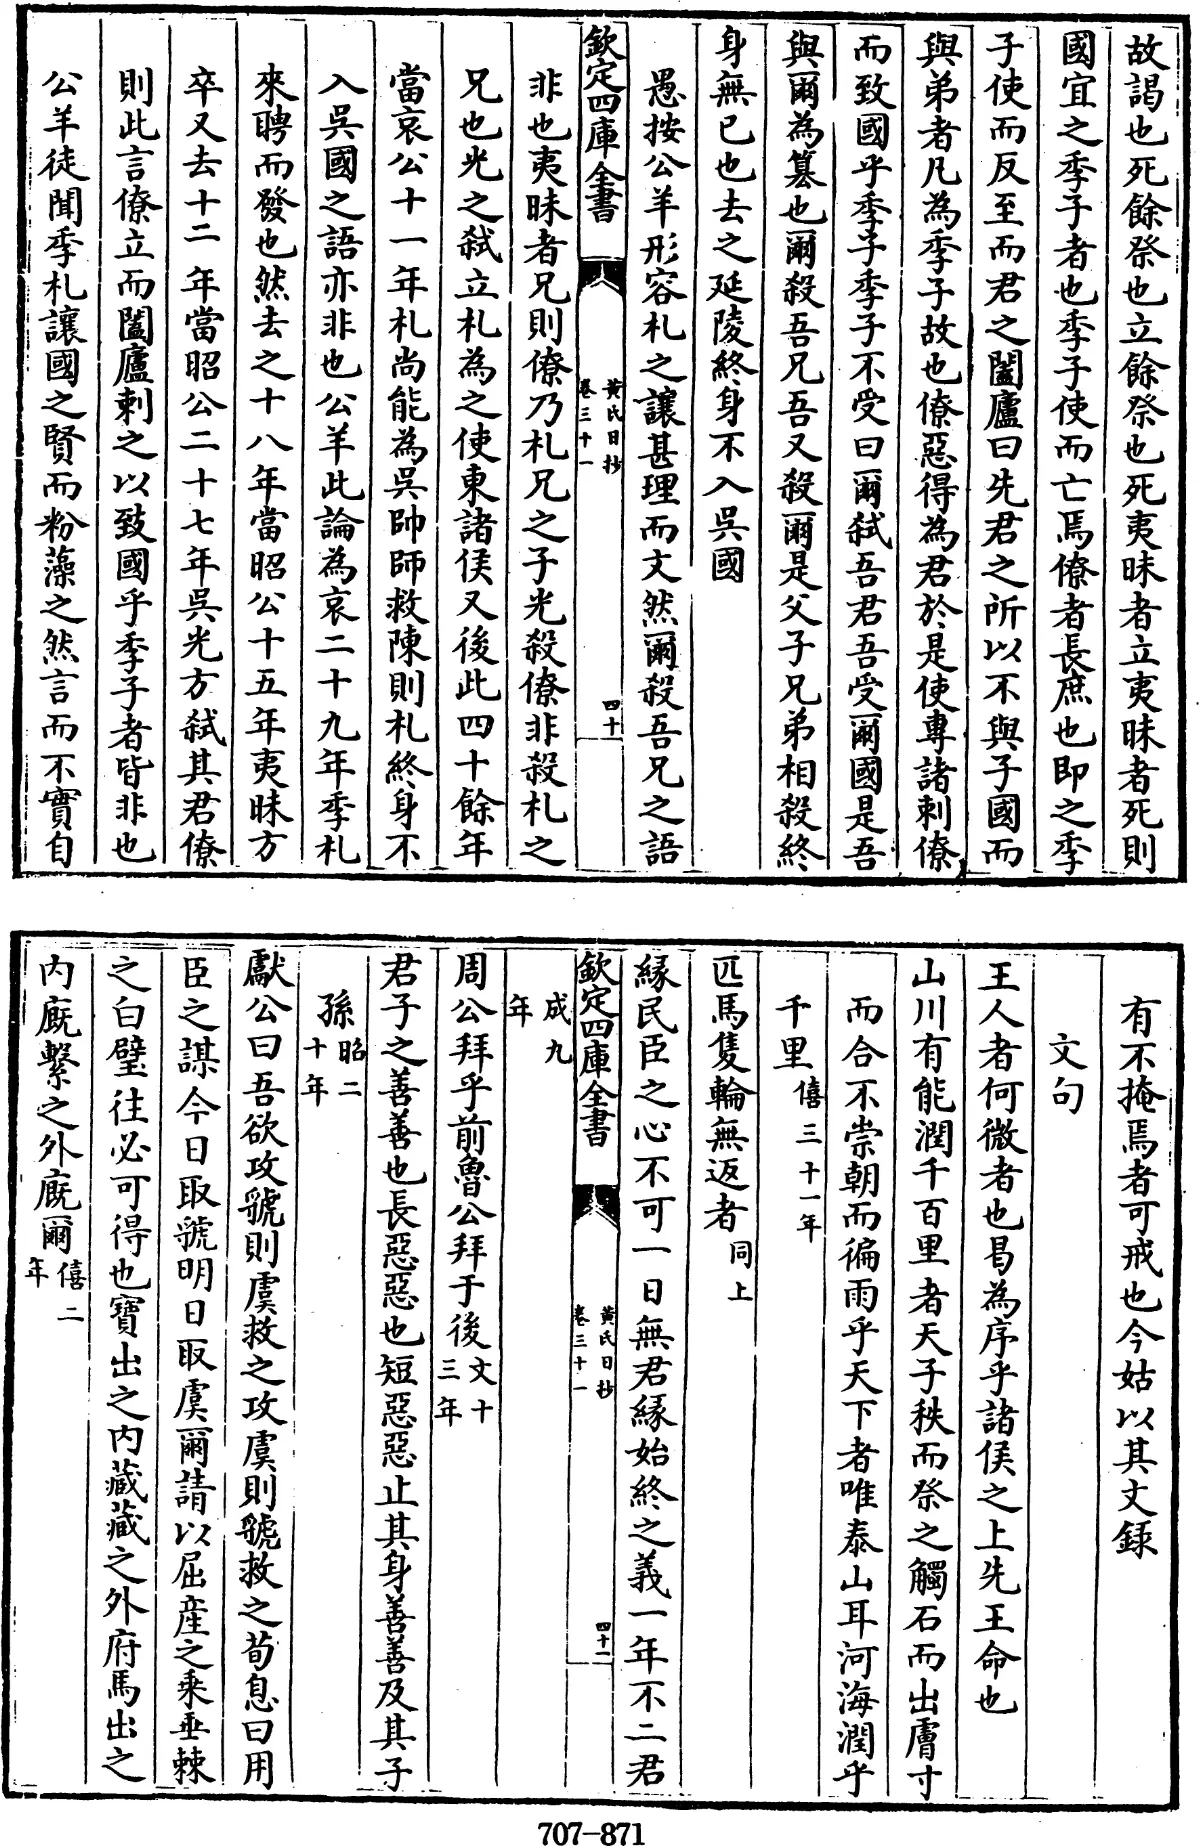 故謁也死餘祭也立餘祭也死夷昧者立夷昧者死則
國宜之季子者也季子使而亡焉僚者長庶也即之季
子使而反至而君之闔廬曰先君之所以不與子國而
與弟者凡為季子故也僚惡得為君於是使專諸刺僚
而致國乎季子季子不受曰爾弒吾君吾受爾國是吾
與爾為簒也爾殺吾兄吾又殺爾是父子兄弟相殺終
身無已也去之延陵終身不入吳國
愚按公羊形容札之讓甚理而文然爾殺吾兄之語
欽定四庫全書
黃氏日抄
卷三十一
四十
非也夷昧者兄則僚乃札兄之子光殺僚非殺札之
兄也光之弒立札為之使東諸侯又後此四十餘年
當哀公十一年札尚能為吳帥師救陳則札終身不
入吳國之語亦非也公羊此論為哀二十九年季札
來聘而發也然去之十八年當昭公十五年夷昧方
卒又去十二年當昭公二十七年吳光方弒其君僚
則此言僚立而闔廬刺之以致國乎季子者皆非也
公羊徒聞季札讓國之賢而粉藻之然言而不實自
有不掩焉者可戒也今姑以其文錄
文句
王人者何微者也曷為序乎諸侯之上先王命也
山川有能潤千百里者天子秩而祭之觸石而出膚寸
而合不崇朝而徧雨乎天下者唯泰山耳河海潤乎
千里僖三十一年
匹馬隻輪無返者同上
緣民臣之心不可一日無君緣始終之義一年不二君
欽定四庫全書
黃氏日抄
卷三十一
四十一
成九年
周公拜乎前魯公拜于後文十三年
君子之善善也長惡惡也短惡惡止其身善善及其子
孫昭二十年
獻公曰吾欲攻虢則虞救之攻虞則虢救之荀息曰用
臣之謀今日取虢明日取虞爾請以屈産之乘垂棘
之白璧往必可得也寶出之内藏藏之外府馬出之
内廐繫之外廐爾僖二年
707-871